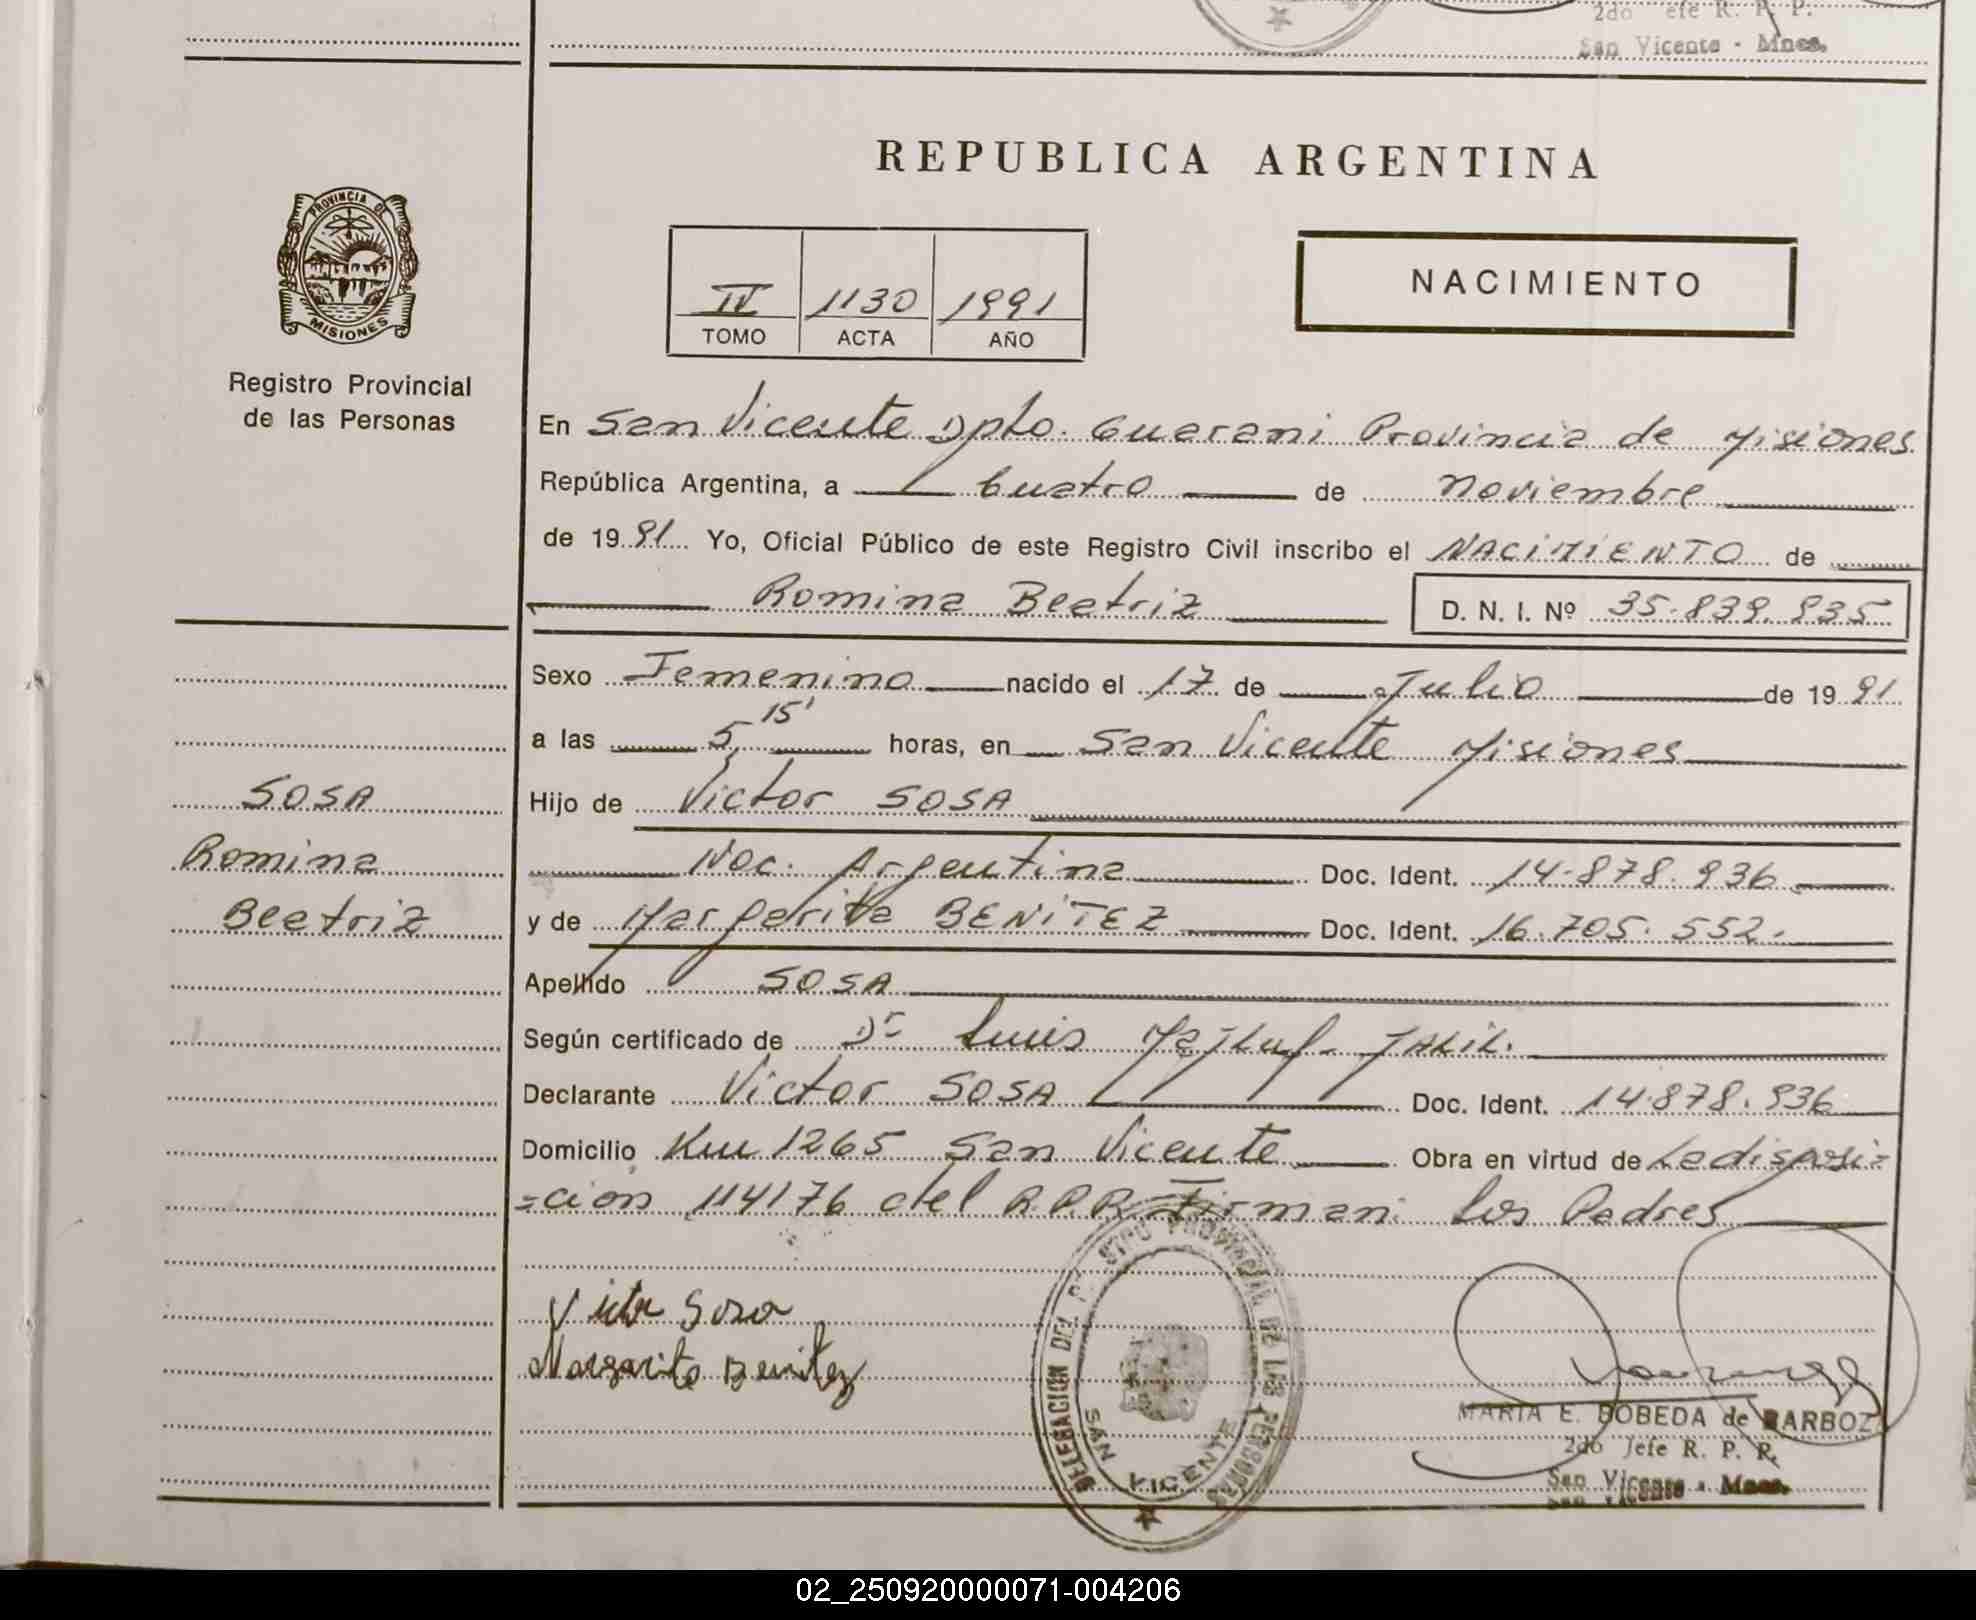 2do Jefe R. P. P.
San Vicente - Mnes.
REPUBLICA ARGENTINA
PROVINCIA DE
MISIONES
Registro Provincial
de las Personas
IV 1130 1991
TOMO ACTA AÑO
NACIMIENTO
En San Vicente Dpto. Guarani Provincia de Misiones
República Argentina, a Cuatro de Noviembre
de 1991 Yo, Oficial Público de este Registro Civil inscribo el NACIMIENTO de
Romina Beatriz D. N. I. Nº 35.839.935
Sexo Femenino nacido el 17 de Julio de 1991
a las 5,15' horas, en San Vicente Misiones
Hijo de Victor SOSA
Nac. Argentina Doc. Ident. 14.878.936
y de Margarita BENITEZ Doc. Ident. 16.705.552.
Apellido SOSA
Según certificado de Dr Luis JALIL.
Declarante Victor SOSA Doc. Ident. 14.878.936
Domicilio Km 1265 San Vicente Obra en virtud de La disposi=
=cion 114176 del R.P.P. Firman: los Padres
SOSA
Romina
Beatriz
Victor Sosa
Margarita Benitez
DELEGACION DEL REGISTRO PROVINCIAL DE LAS PERSONAS
SAN VICENTE
MARIA E. BOBEDA de BARBOZ
2do Jefe R. P. P.
San Vicente - Mnes.
02_250920000071-004206